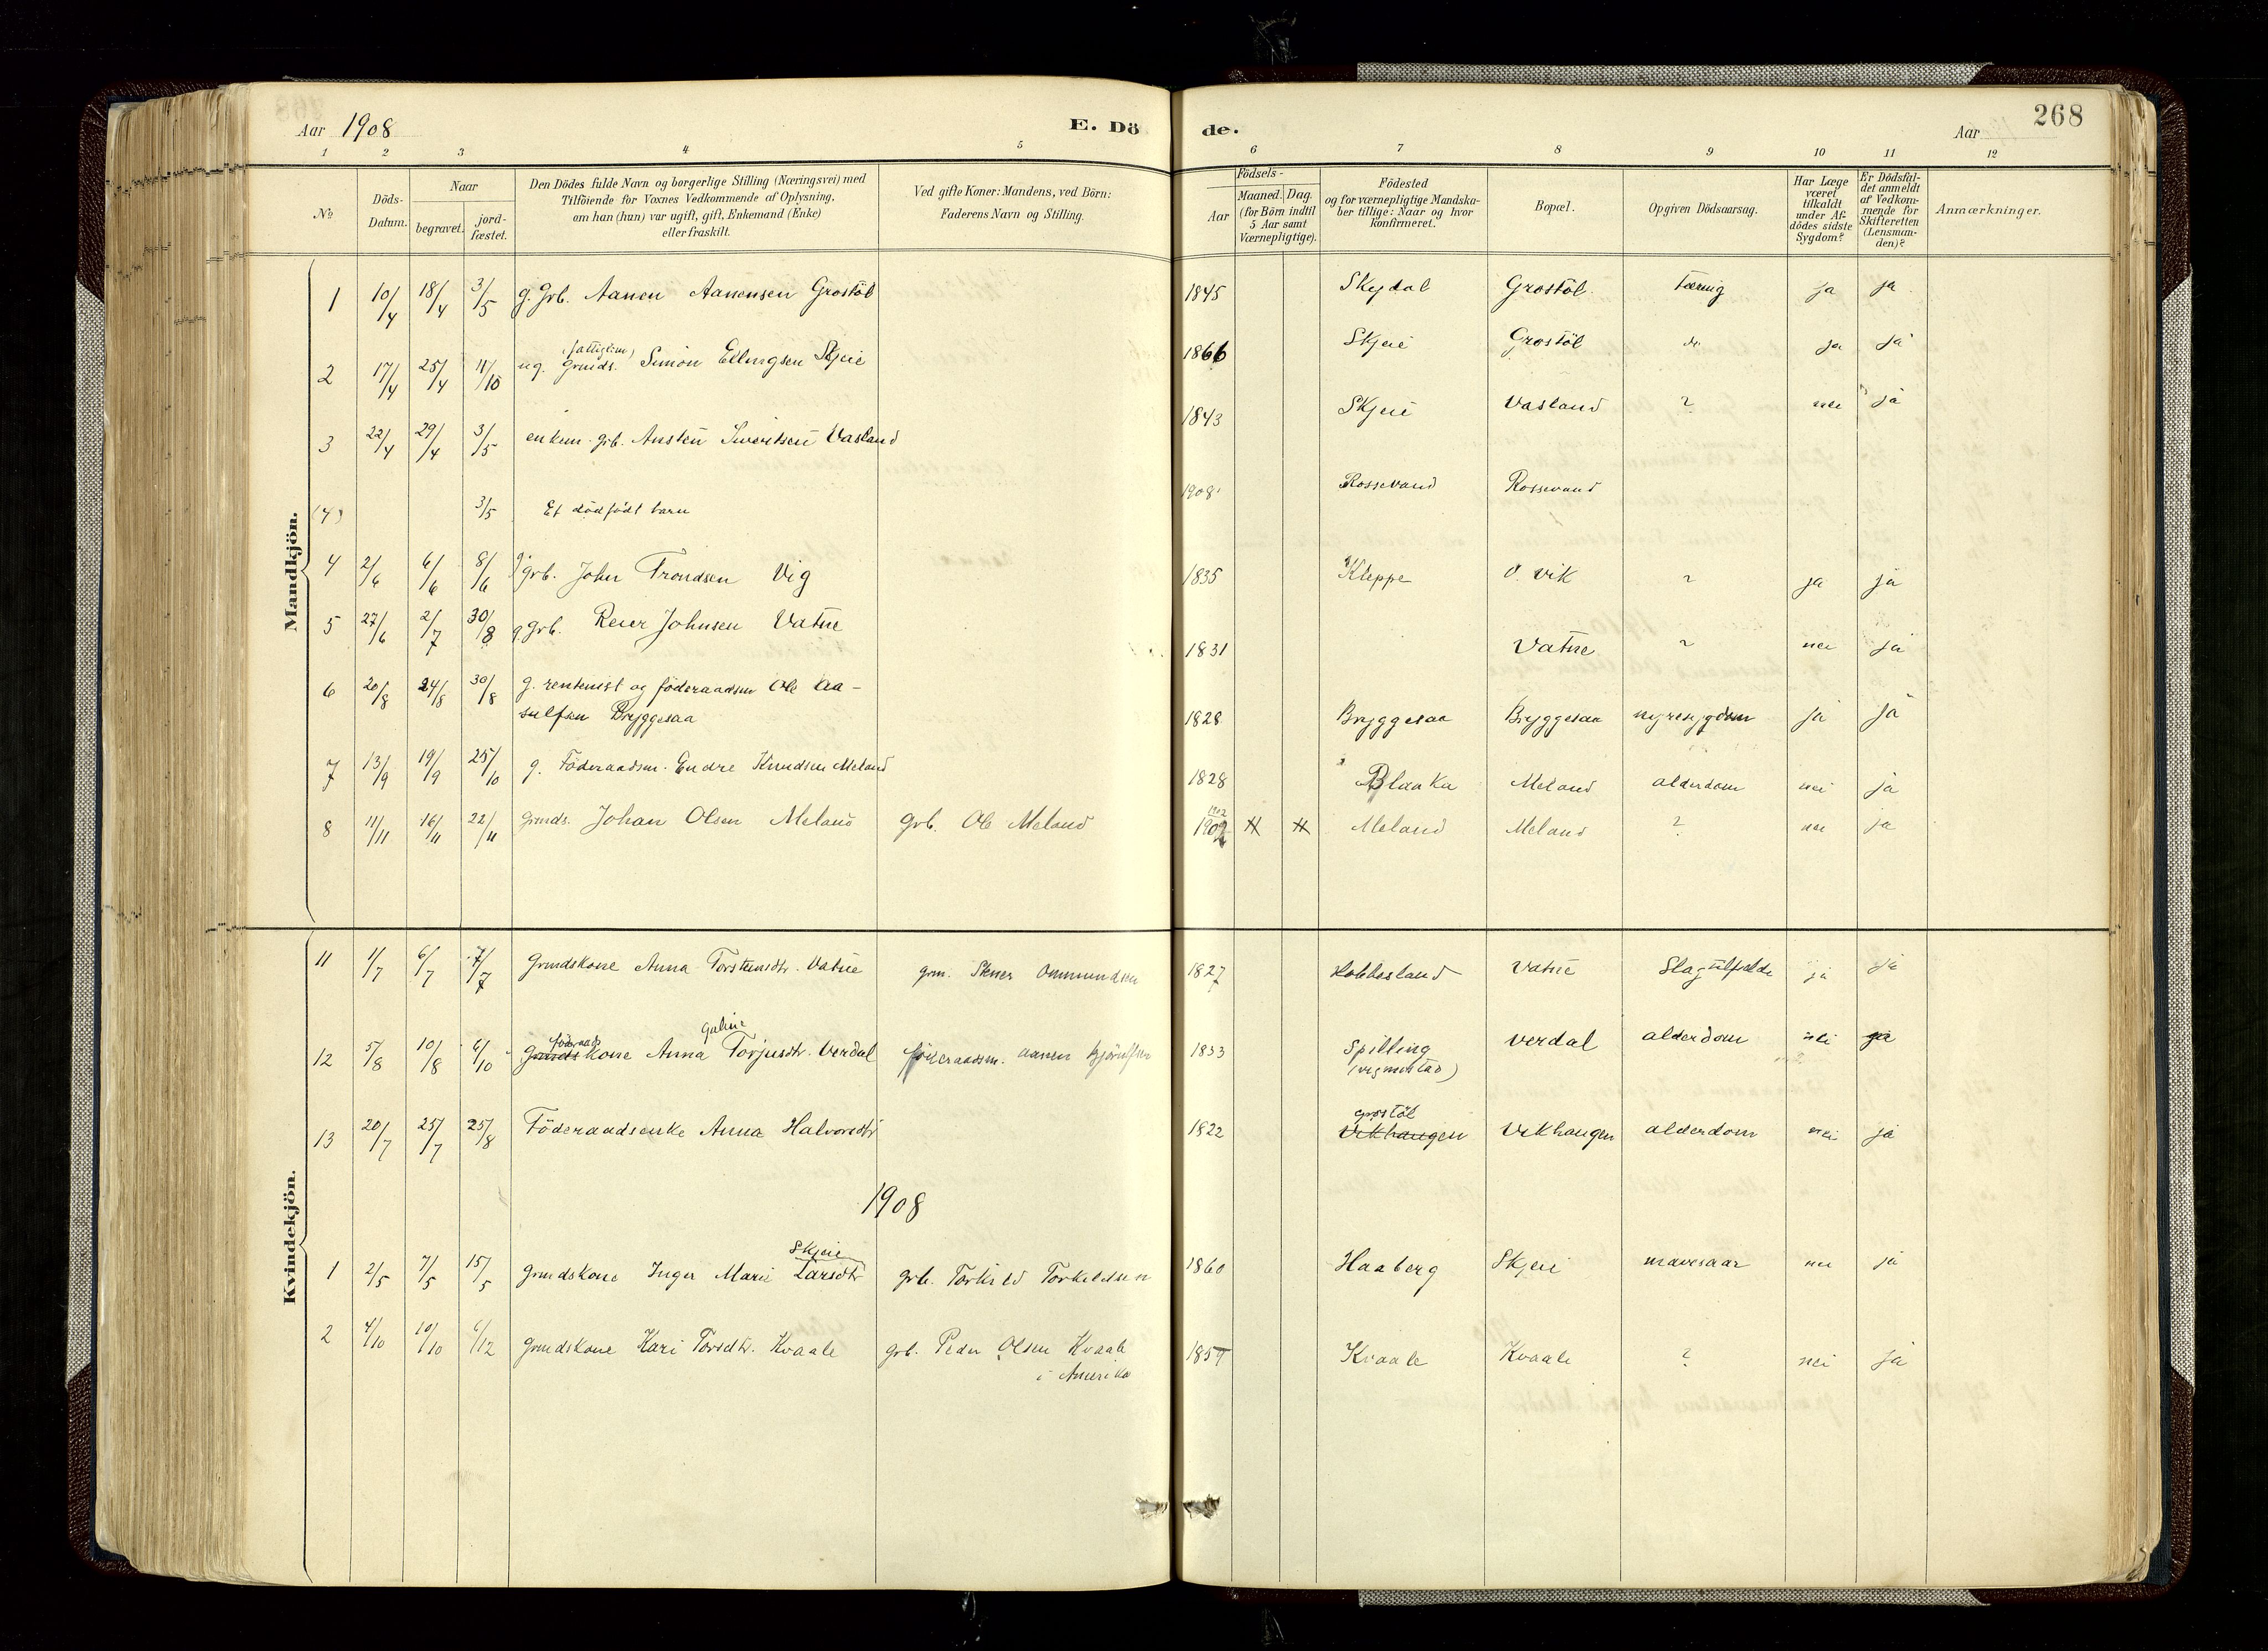 268
Aar 1908
E. Dö de.
Aar
1 2 3 4 5 6 7 8 9 10 11 12
No
Döds-Datum.
Naar
begravet.
jord-fæstet.
Den Dödes fulde Navn og borgerlige Stilling (Næringsvei) med
Tilföiende for Voxnes Vedkommende af Oplysning,
om han (hun) var ugift, gift, Enkemand (Enke)
eller fraskilt.
Ved gifte Koner: Mandens, ved Börn:
Faderens Navn og Stilling.
Födsels-
Aar
Maaned. Dag.
(for Börn indtil
5 Aar samt
Værnepligtige).
Födested
og for værnepligtige Mandska-
ber tillige: Naar og hvor
konfirmeret.
Bopæl.
Opgiven Dödsaarsag.
Har Læge
været
tilkaldt
under Af-
dödes sidste
Sygdom?
Er Dödsfal-
det anmeldt
af Vedkom-
mende for
Skifteretten
(Lensman-
den)?
Anmærkninger.
Mandkjön.
1 10/4 18/4 3/5 g. Grb. Aanen Aanensen Grostöl 1845 Skejdal Grostöl Tæring ja ja
2 17/4 25/4 11/10 ug. Grmds. (fattiglem) Simon Ellingsen Skjeie 1866 Skjeie Grostöl do ja ja
3 22/4 29/4 3/5 enkem. grb. Ansten Sivertsen Vasland 1843 Skjeie Vasland ? nei ja
(4) 3/5 Et dödfödt barn 1908 Rossevand Rossevand
4 2/6 6/6 8/6 g. grb. John Trondsen Vig 1835 Kleppe O. Vik ? ja ja
5 27/6 2/7 30/8 g. grb. Reier Johnsen Vatne 1831 Vatne ? nei ja
6 20/8 24/8 30/8 g. rentenist og föderaadsm Ole Aa-
sulfsen Bryggesaa 1828 Bryggesaa Bryggesaa nyresygdom ja ja
7 13/9 19/9 25/10 g. Föderaadsm. Endre Knudsen Meland 1828 Blaaka Meland alderdom nei ja
8 11/11 16/11 22/11 grmds. Johan Olsen Meland grb. Ole Meland 1902 1902 Meland Meland ? nei ja
Kvindekjön.
11 1/7 6/7 7/7 Grmdskone Anna Torsteinsdtr. Vatne grm. Stener Ommundsen 1827 Hobbesland Vatne Slagtilfælde ja ja
12 5/8 10/8 6/10 Grmds föderaads kone Anna Galine Torjusdtr. Verdal föderaadsm. Aanen Björnsen 1833 Spilling
(Vigmostad) Verdal alderdom nei ja
13 20/7 25/7 25/8 Föderaadsenke Anna Halvorsdtr 1822 Grostöl Vikhaugen Vikhaugen alderdom nei ja
1908
1 2/5 7/5 15/5 Grmdskone Inger Marie Larsdtr Skjeie grb. Torkild Torkildsen 1860 Haaberg Skjeie mavesaar nei ja
2 4/10 10/10 6/12 Grmdskone Kari Torsdtr. Kvaale grb. Peder Olsen Kvaale
i Amerika 1857 Kvaale Kvaale ? nei ja